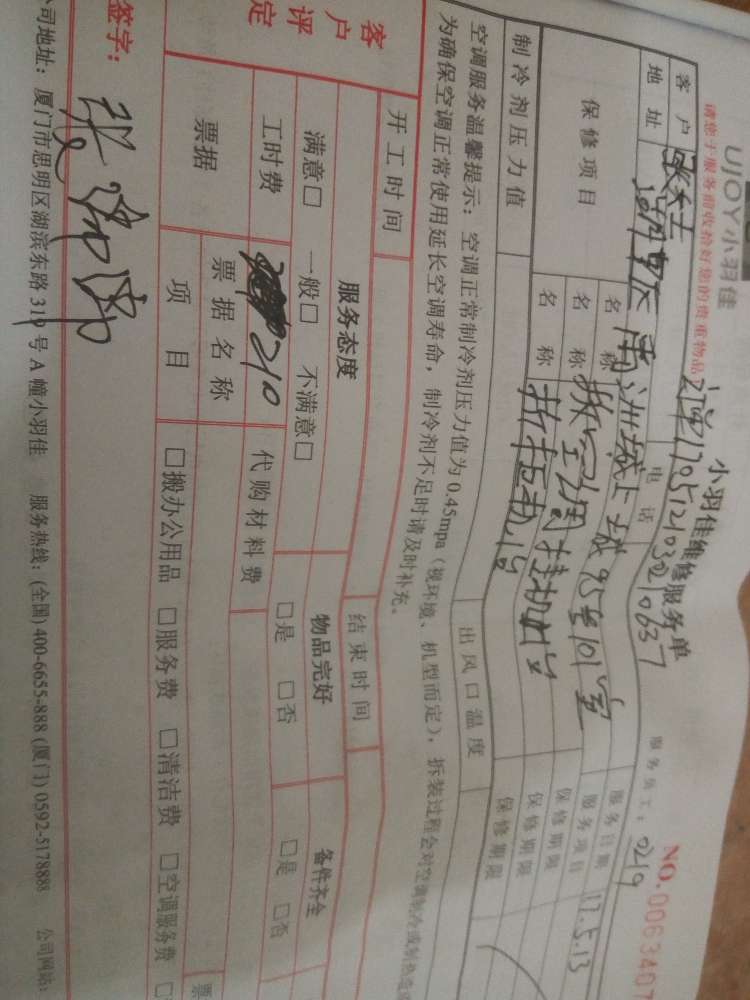 UJOY小羽佳
小羽佳维修服务单
NO.0063407
请您于服务前收拾好您的贵重物品
服务员工：0219
客户 张女士 电话
服务日期 17.5.13
地址 上城95号101室
服务项目
保修项目 名称 拆空调挂机1台 保修期限
名称 保修期限
名称 保修期限
制冷剂压力值 出风口温度
空调服务温馨提示：空调正常制冷剂压力值为0.45mpa（视环境、机型而定），拆装过程会对空调制冷或制热造成
为确保空调正常使用延长空调寿命，制冷剂不足时请及时补充。
开工时间 结束时间
客户评定
服务态度 物品完好 备件齐全
满意□ 一般□ 不满意□ □是 □否 □是 □否
工时费 210 代购材料费
票据 票据名称 票
项目 □搬办公用品 □服务费 □清洁费 □空调服务费
签字：
公司地址：厦门市思明区湖滨东路319号A幢小羽佳 服务热线：(全国) 400-6655-888 (厦门) 0592-5178888 公司网站：